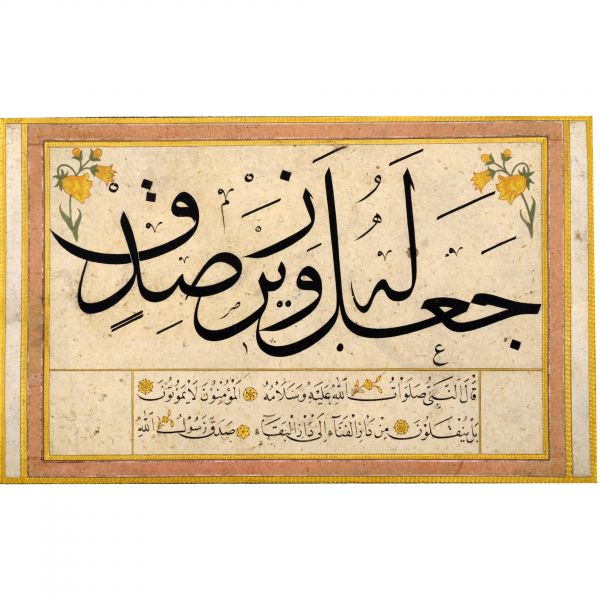 جَعَلَ لَهُ وَزِيرَ صِدْقٍ
قَالَ النَّبِيُّ صَلَوَاتُ اللّٰهِ عَلَيْهِ وَسَلَامُهُ الْمُؤْمِنُونَ لَا يَمُوتُونَ
بَلْ يُنْقَلُونَ مِنْ دَارِ الْفَنَاءِ إِلَى دَارِ الْبَقَاءِ صَدَقَ رَسُولُ اللّٰهِ